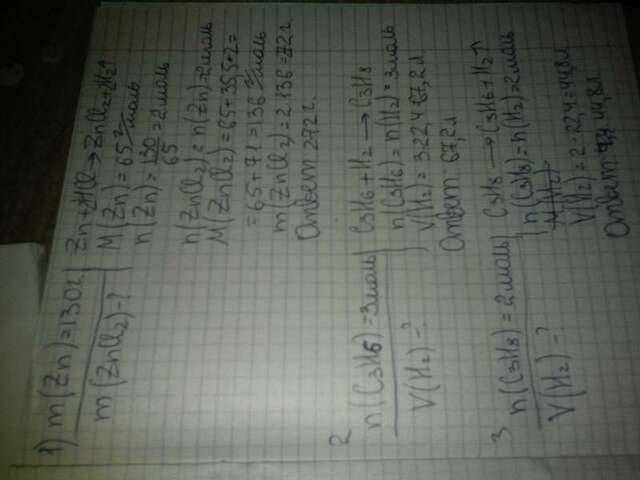 1) m(Zn)=130г.
m(ZnCl2)-?
Zn+HCl→ZnCl2+H2↑
M(Zn)=65 г/моль
n(Zn)=130/65=2моль
n(ZnCl2)=n(Zn)=2моль
M(ZnCl2)=65+35,5·2=
=65+71=136 г/моль
m(ZnCl2)=2·136=272г.
Ответ 272г.
2
n(C3H6)=3моль
V(H2)-?
C3H6+H2→C3H8
n(C3H6)=n(H2)=3моль
V(H2)=3·22,4=67,2л
Ответ 67,2л
3
n(C3H8)=2моль
V(H2)-?
C3H8→C3H6+H2↑
n(C3H8)=n(H2)=2моль
V(H2)=2·22,4=44,8л
Ответ 44,8л